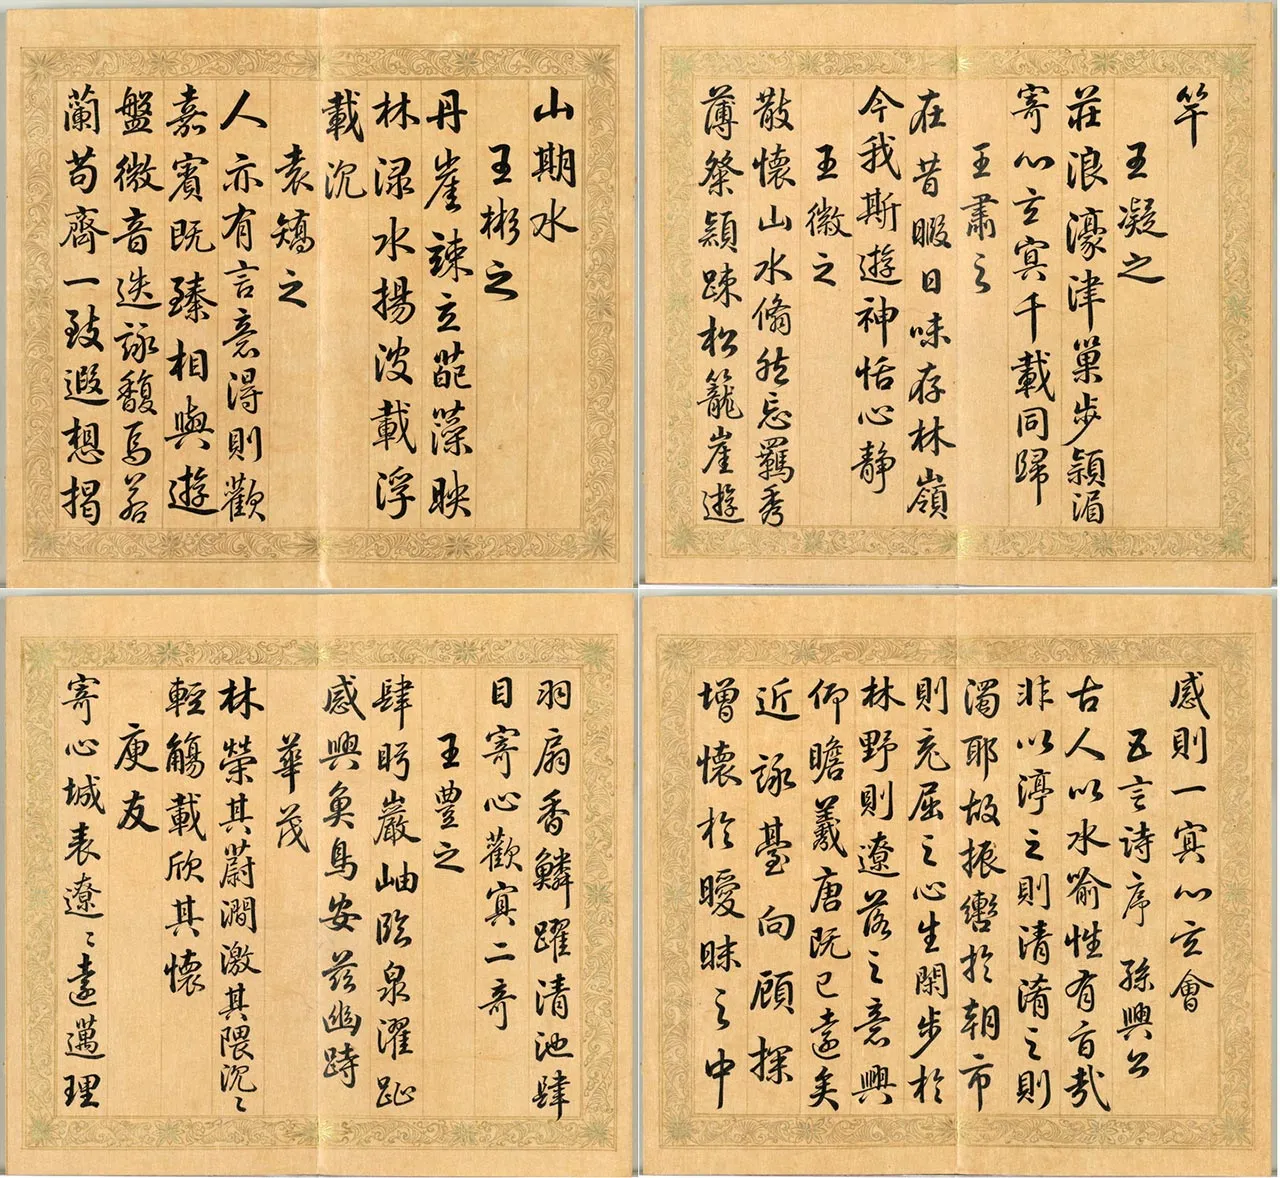 山期水
王彬之
丹崖竦立葩藻映
林渌水揚波載浮
載沉
袁矯之
人亦有言意得則歡
嘉賓既臻相與遊
盤微音迭詠馥焉若
蘭苟齊一致遐想揭
竿
王凝之
莊浪濠津巢步潁湄
寄心玄冥千載同歸
王肅之
在昔暇日味存林嶺
今我斯遊神怡心靜
王徽之
散懷山水翛然忘羈秀
薄粲穎踈松籠崖遊
羽扇香鱗躍清池肆
目寄心歡冥二奇
王豊之
肆眄巖岫臨泉濯趾
感興魚鳥安茲幽跱
華茂
林榮其蔚澗激其隈沉〻
輕觴載欣其懷
庾友
寄心城表遼〻遠邁理
感則一冥心玄會
五言詩序 孫興公
古人以水喻性有旨哉
非以渟之則清淆之則
濁耶故振轡於朝市
則充屈之心生閑步於
林野則遼落之意興
仰瞻羲唐既已遠矣
近詠臺向顧探
增懷於曖昧之中